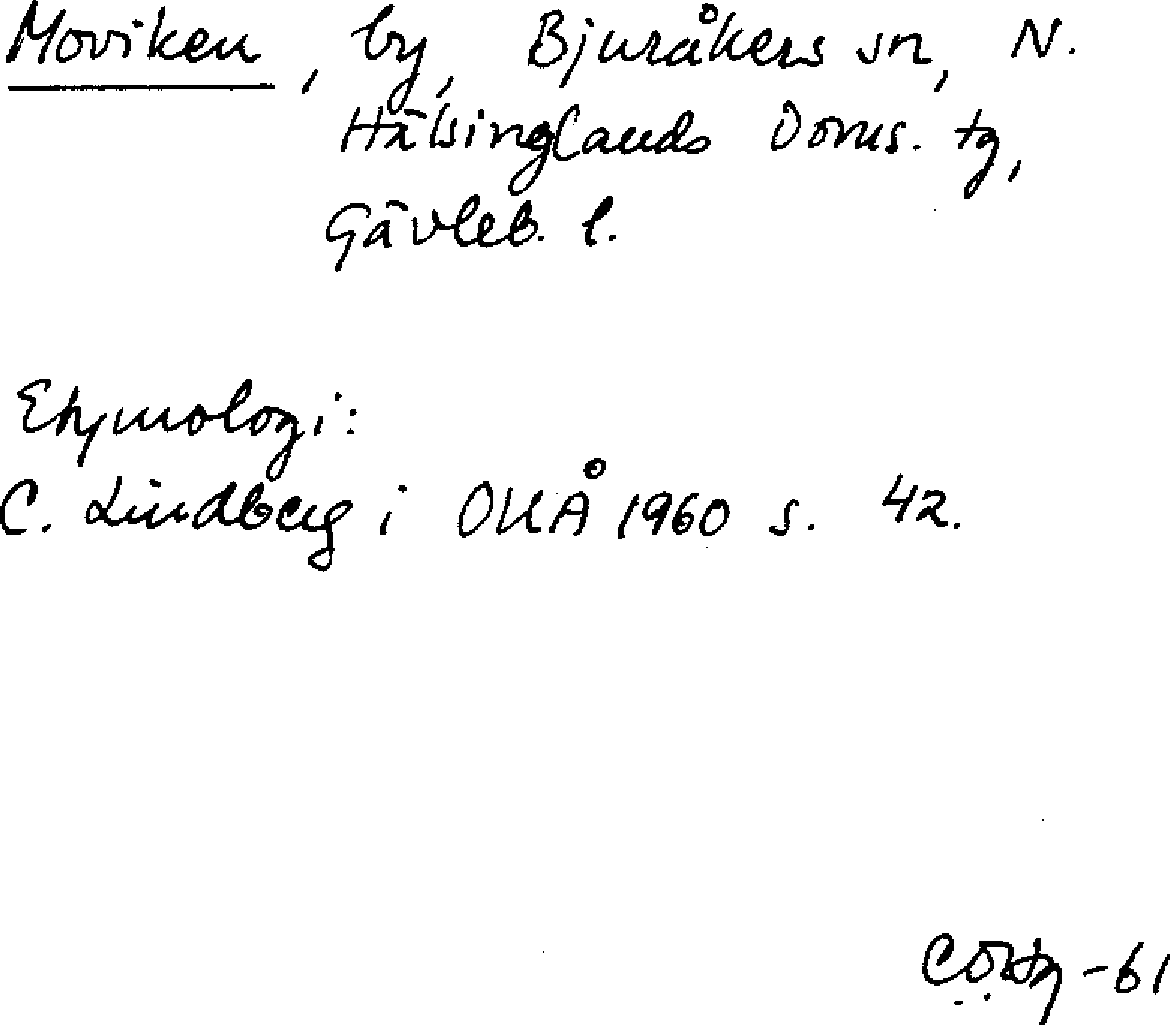 Moviken, by, Bjuråkers sn, N.
Hälsinglands Doms. tg,
Gävleb. l.
Etymologi:
C. Lindberg i OUÅ 1960 s. 42.
-61